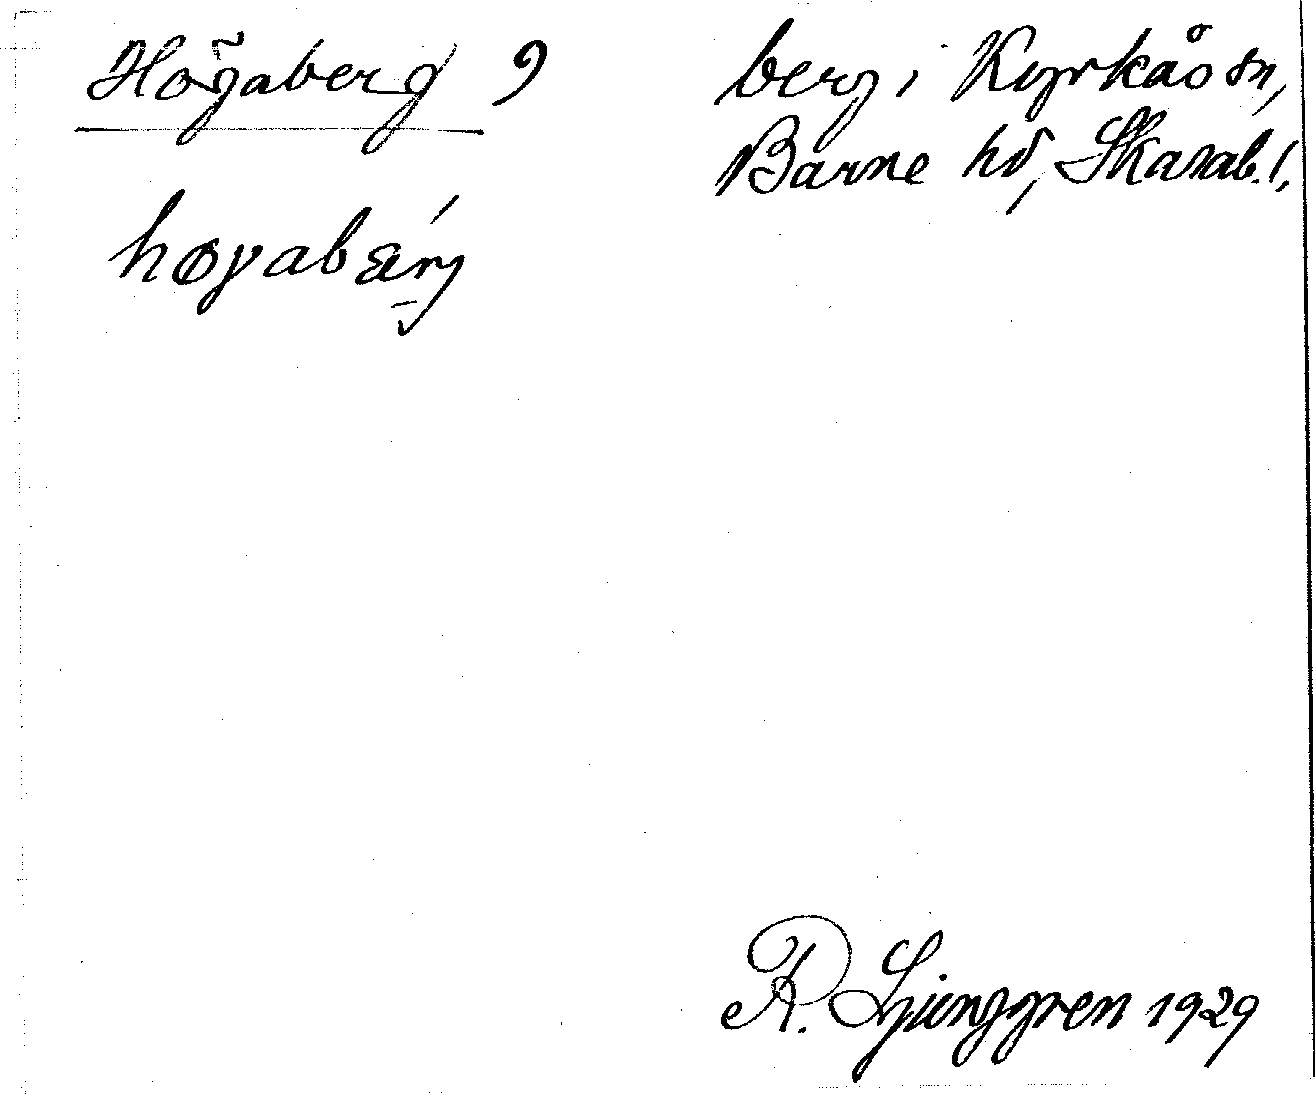 Högaberg 9
høyabærj
berg i Kyrkås sn,
Barne hd, Skarab. l.
K. Ljunggren 1929